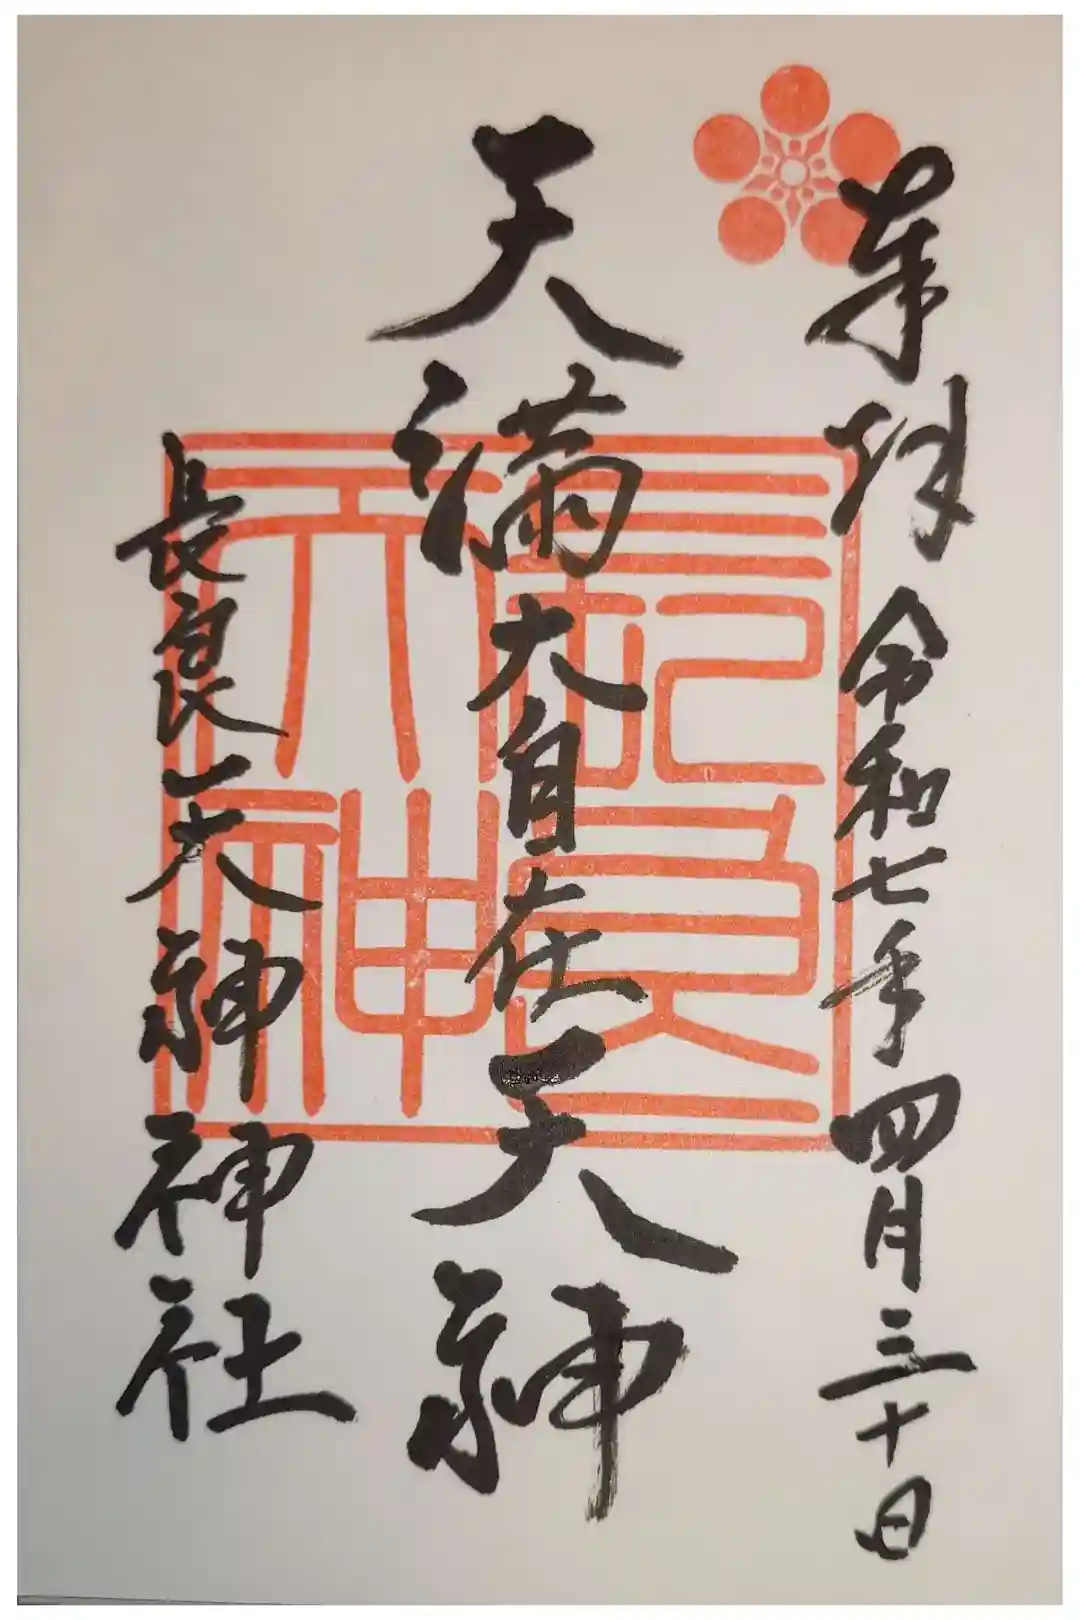 奉拝 令和七年四月三十日
天満大自在天神
長良天神神社
長良天神